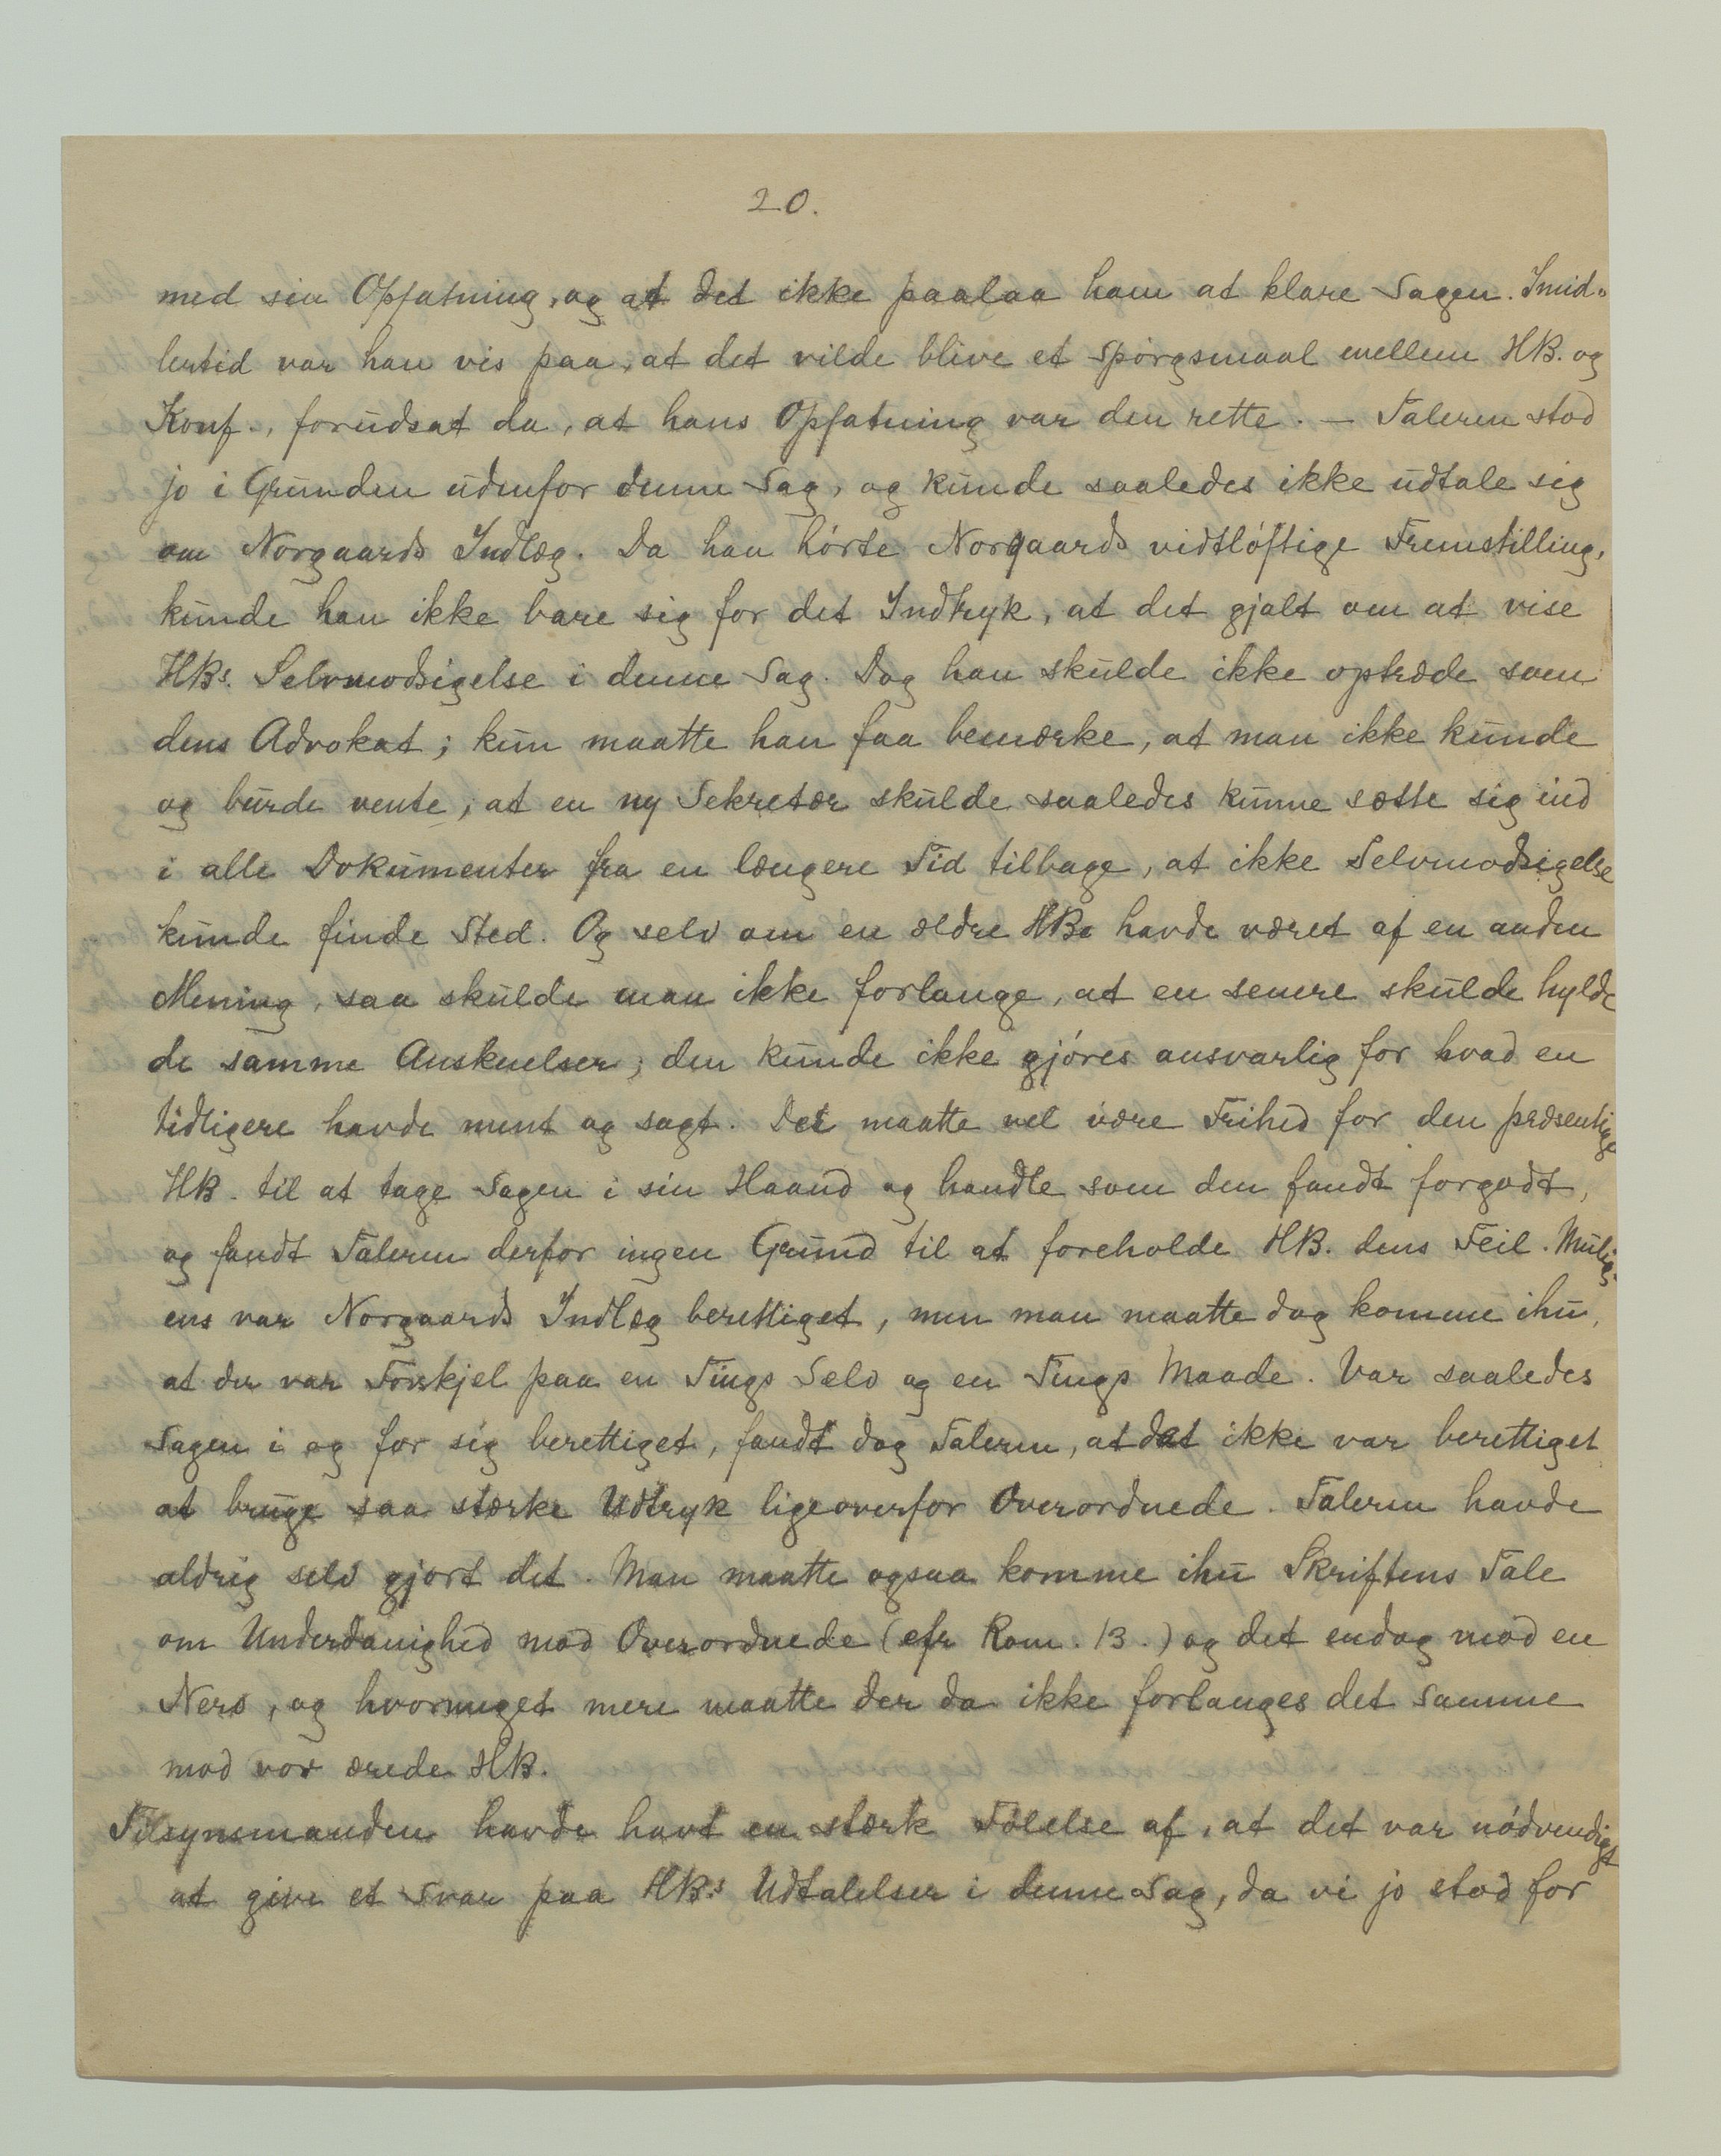 20.
med sin Opfatning, og at det ikke paalaa ham at klare Sagen. Imid-
lertid var han vis paa, at det vilde blive et Spórgsmaal mellem HB. og
Konf., forudsat da, at hans Opfatning var den rette. — Taleren stod
jo i Grunden udenfor denne Sag, og kunde saaledes ikke udtale sig
om Norgaards Indlæg. Da han hórte Norgaards vidtlóftige Fremstilling,
kunde han ikke bare sig for det Indtryk, at det gjalt om at vise
HBs. Selvmodsigelse i denne Sag. Dog han skulde ikke optræde som
dens Advokat; kun maatte han faa bemærke, at man ikke kunde
og burde vente, at en ny Sekretær skulde saaledes kunne sætte sig ind
i alle Dokumenter fra en længere Tid tilbage, at ikke Selvmodsigelse
kunde finde Sted. Og selv om en ældre HB. havde været af en anden
Mening, saa skulde man ikke forlange, at en senere skulde hylde
de samme Anskuelser; den kunde ikke gjóres ansvarlig for hvad en
tidligere havde ment og sagt. Det maatte vel være Frihed for den præsentige
HB. til at tage Sagen i sin Haand og handle som den fandt forgodt,
og fandt Taleren derfor ingen Grund til at foreholde HB. dens Feil. Mulig-
ens var Norgaards Indlæg berettiget, men man maatte dog komme ihu,
at der var Forskjel paa en Tings Selv og en Tings Maade. Var saaledes
Sagen i og for sig berettiget, fandt dog Taleren, at det ikke var berettiget
at bruge saa stærke Udtryk ligeoverfor Overordnede. Taleren havde
aldrig selv gjort det. Man maatte ogsaa komme ihu Skriftens Tale
om Underdanighed mod Overordnede (cfr Rom. 13.) og det endog mod en
Nero, og hvormeget mere maatte der da ikke forlanges det samme
mod vor ærede HB.
Tilsynsmanden havde havt en stærk Fólelse af, at det var nódvendigt
at give et Svar paa HBs Udtalelser i denne Sag, da vi jo stod for